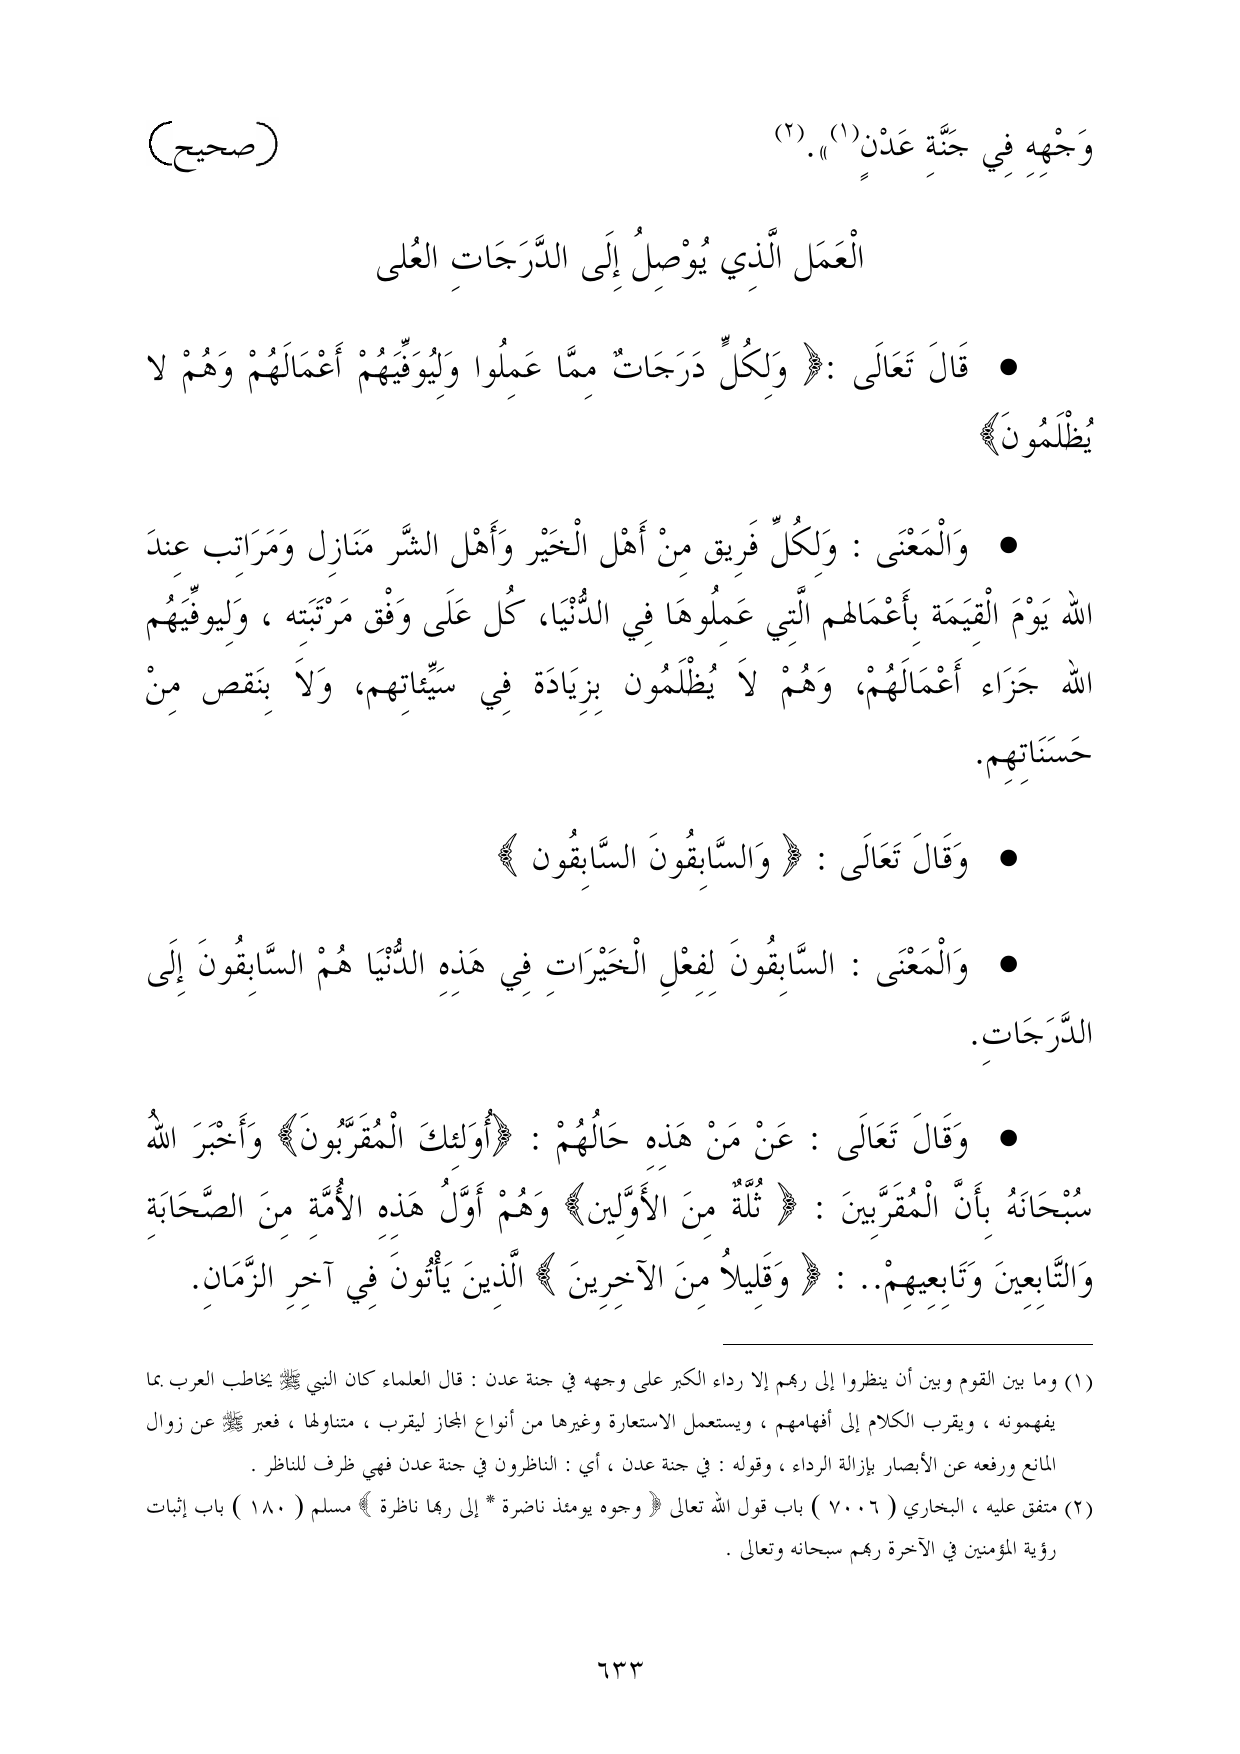 وَجْهِهِ فِي جَنَّةِ عَدْنٍ(١)».(٢) (صحيح)
الْعَمَل الَّذِي يُوْصِلُ إِلَى الدَّرَجَاتِ العُلى
● قَالَ تَعَالَى :﴿ وَلِكُلٍّ دَرَجَاتٌ مِمَّا عَمِلُوا وَلِيُوَفِّيَهُمْ أَعْمَالَهُمْ وَهُمْ لا
يُظْلَمُونَ﴾
● وَالْمَعْنَى : وَلِكُلِّ فَرِيق مِنْ أَهْل الْخَيْر وَأَهْل الشَّر مَنَازِل وَمَرَاتِب عِندَ
الله يَوْمَ الْقِيَمَة بِأَعْمَالهم الَّتِي عَمِلُوهَا فِي الدُّنْيَا، كُل عَلَى وَفْق مَرْتَبَتِه ، وَلِيوفِّيَهُم
الله جَزَاء أَعْمَالَهُمْ، وَهُمْ لاَ يُظْلَمُون بِزِيَادَة فِي سَيِّئاتِهم، وَلاَ بِنَقص مِنْ
حَسَنَاتِهِم.
● وَقَالَ تَعَالَى : ﴿ وَالسَّابِقُونَ السَّابِقُون ﴾
● وَالْمَعْنَى : السَّابِقُونَ لِفِعْلِ الْخَيْرَاتِ فِي هَذِهِ الدُّنْيَا هُمْ السَّابِقُونَ إِلَى
الدَّرَجَاتِ.
● وَقَالَ تَعَالَى : عَنْ مَنْ هَذِهِ حَالُهُمْ : ﴿أُوَلئِكَ الْمُقَرَّبُونَ﴾ وَأَخْبَرَ اللهُ
سُبْحَانَهُ بِأَنَّ الْمُقَرَّبِينَ : ﴿ ثُلَّةٌ مِنَ الأَوَّلِين﴾ وَهُمْ أَوَّلُ هَذِهِ الأُمَّةِ مِنَ الصَّحَابَةِ
وَالتَّابِعِينَ وَتَابِعِيهِمْ.. : ﴿ وَقَلِيلاُ مِنَ الآخِرِينَ ﴾ الَّذِينَ يَأْتُونَ فِي آخِرِ الزَّمَانِ.
(١) وما بين القوم وبين أن ينظروا إلى ربهم إلا رداء الكبر على وجهه في جنة عدن : قال العلماء كان النبي ﷺ يخاطب العرب بما
يفهمونه ، ويقرب الكلام إلى أفهامهم ، ويستعمل الاستعارة وغيرها من أنواع المجاز ليقرب ، متناولها ، فعبر ﷺ عن زوال
المانع ورفعه عن الأبصار بإزالة الرداء ، وقوله : في جنة عدن ، أي : الناظرون في جنة عدن فهي ظرف للناظر .
(٢) متفق عليه ، البخاري ( ٧٠٠٦ ) باب قول الله تعالى ﴿ وجوه يومئذ ناضرة * إلى ربها ناظرة ﴾ مسلم ( ١٨٠ ) باب إثبات
رؤية المؤمنين في الآخرة ربهم سبحانه وتعالى .
٦٣٣